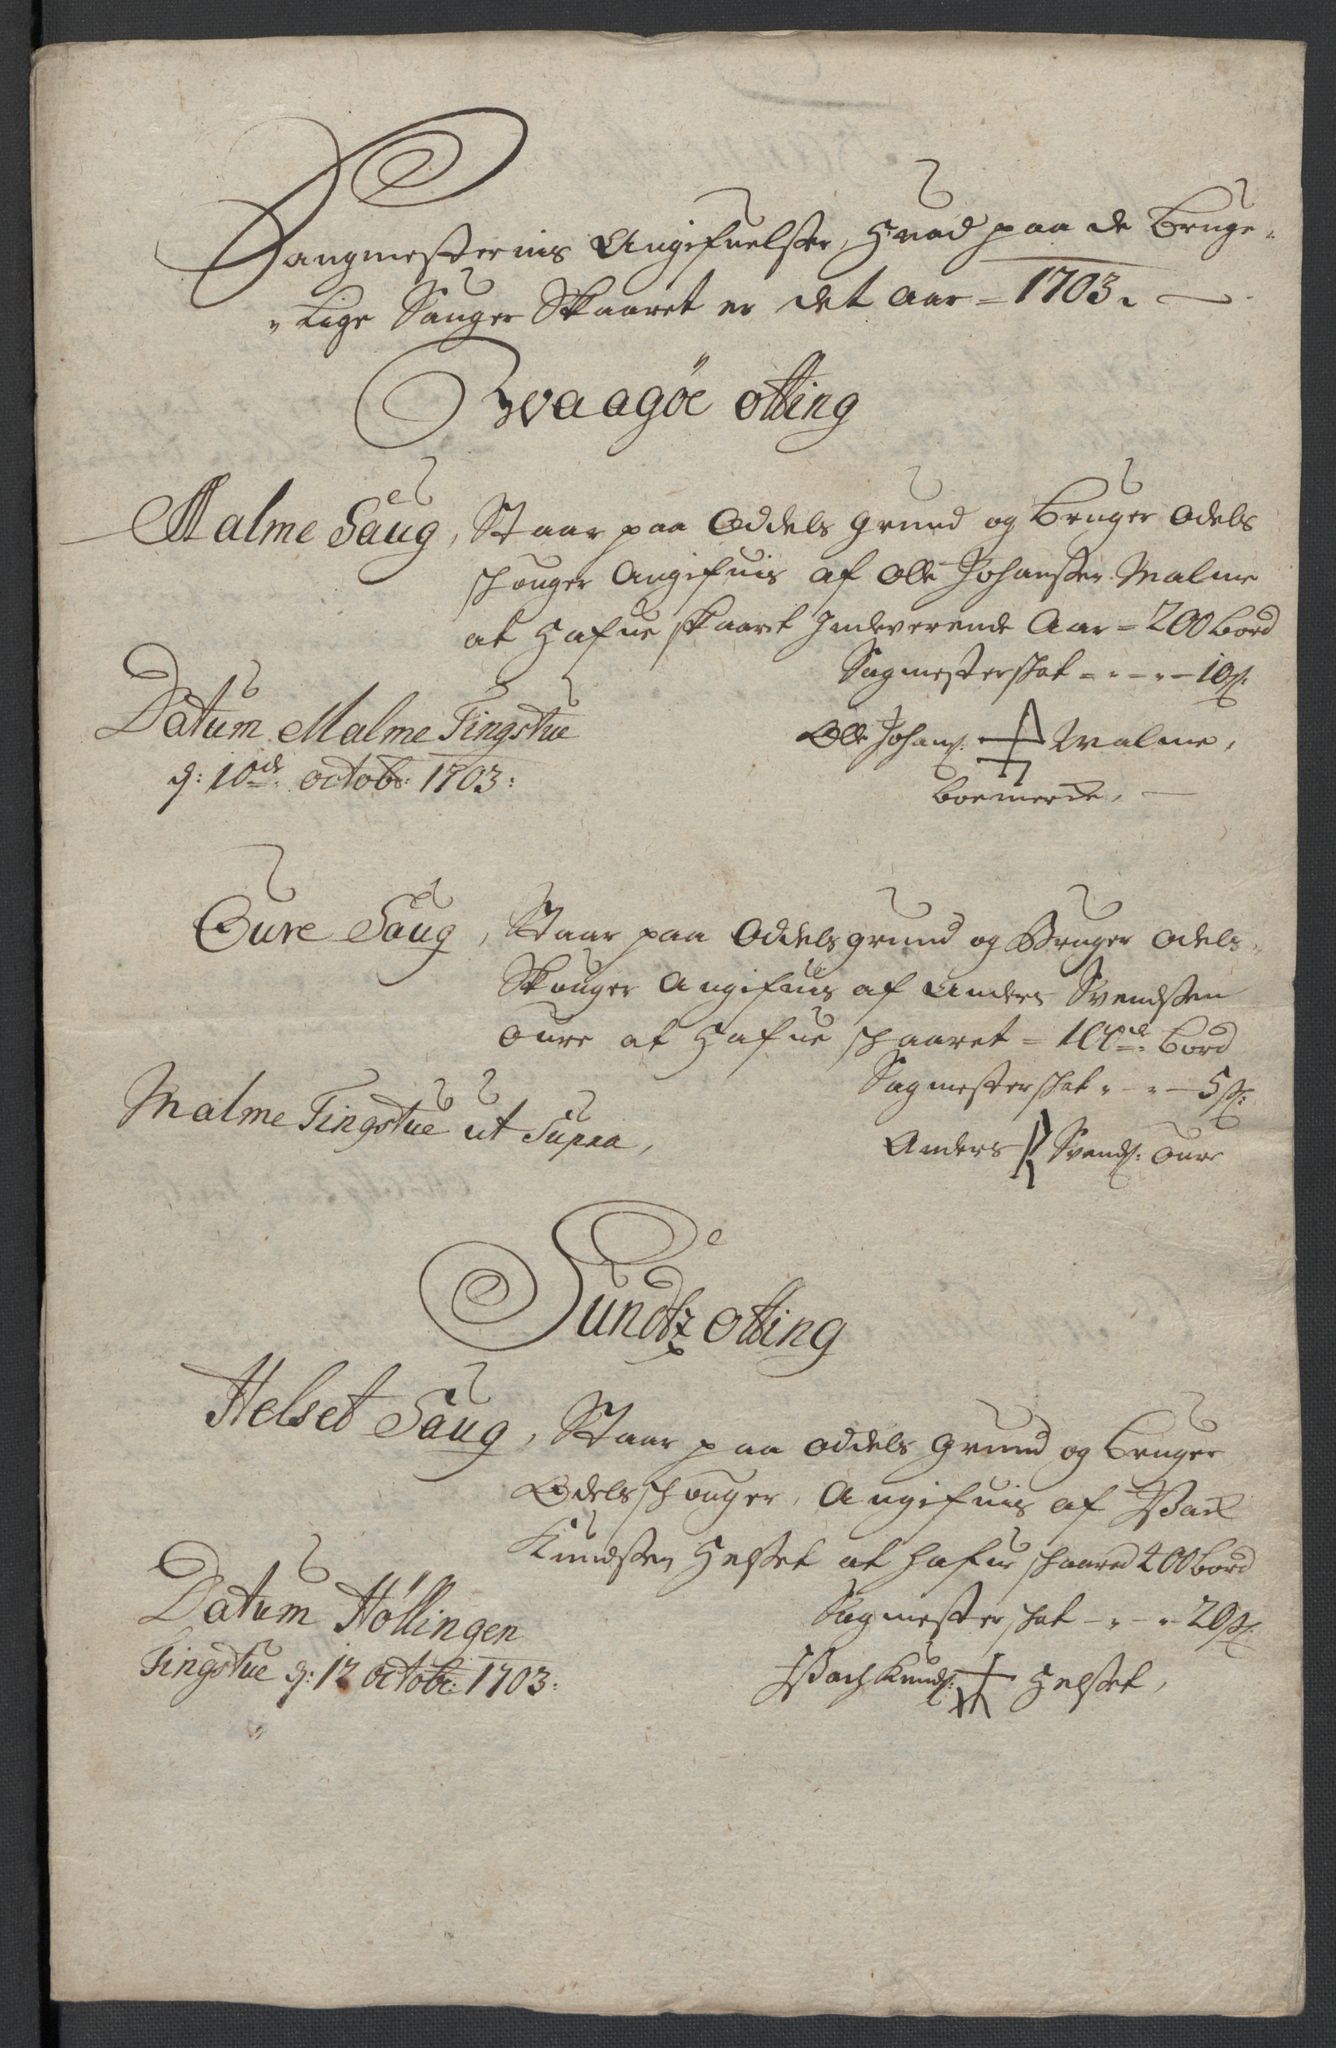 Saugmesternis Angifuelsser, Hvad paa de Bruge-
Lige Sauger Skaaret er det Aar = 1703.
Waagöe otting
Malme Saug, Staar paa Oddels grund og Bruger Odels
schouger Angifuis af Olle Johansen Malme
at Hafue skaaret Indeverende Aar = 200 bord
Sagmesterschat - - - 10 s:
Datum Malme Tingstue
d: 10de octobr: 1703:
Olle Johans: Malme,
boemercke,
Oure Saug, Staar paa Oddels grund og Bruger odels
Skouger Angifuis af Anders Svendsen
Oure at Hafue schaaret = 100de Bord
Sagmesterschat - - - 5 s:
Malme Tingstue ut Supra,
Anders Svends: Oure
Sundtz otting
Helset Saug, Staar paa oddels grund og Bruger
Odels schouger, Angifuis af
Knudsen Helset at hafue schaaret 400 bord
Sagmester schat - - - 20 s:
Datum Höllingen
Tingstue d: 12 octobr: 1703:
Knuds: Helset,